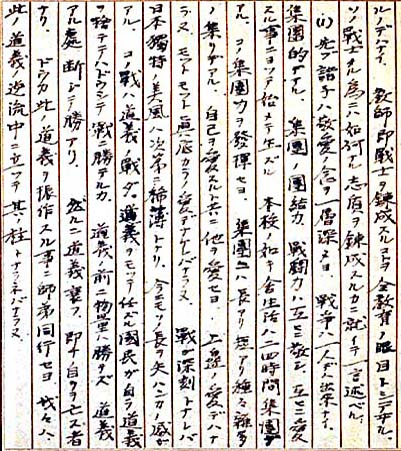 ルノデナイ。教師即戦士ヲ錬成スルコトヲ全教育ノ眼目トシテヰル。
ソノ戦士タル為ニハ如何ナル志質ヲ錬成スルカニ就イテ一言述ベル。
(1) 先ヅ諸子ハ敬愛ノ念ヲ一層深メヨ 戦争ハ一人デハ出来ナイ。
集團的デアル。集團ノ團結力、戦闘力ハ互ニ敬シ、互ニ愛
スル事ニヨツテ始メテ生ズル 本校ノ如キ舎生活ハ二四時間集團デ
アル。コノ集團力ヲ發揮セヨ。集團ニハ長アリ短アリ種々雑多
ノ集リデアル。自己ヲ愛スルト共ニ他ヲ愛セヨ。上ノ愛デハナ
ラヌ モツトモツト真底カラノ愛デナケレバナラヌ 戦ガ深刻トナレバ
日本獨特ノ美風ハ次第ニ稀薄トナリ、今ニモソノ長ヲ失ハンカノ感ガ
アル。コノ戦ハ道義ノ戦ダ。道義ヲモツテ任ズル國民ガ自ラ道義
ヲ捨テテハドウシテ戦ニ勝テルカ。道義ノ前ニ物量ハ勝タズ 道義
アル處断ジテ勝アリ。然ルニ道義衰フ、即チ自ラ亡ズ者
ナリ。ドウカ此ノ道義ヲ振作スル事ニ師弟同行セヨ 我々ハ
此ノ道義ノ逆流中ニ立ツテ其ノ柱トナラネバナラヌ